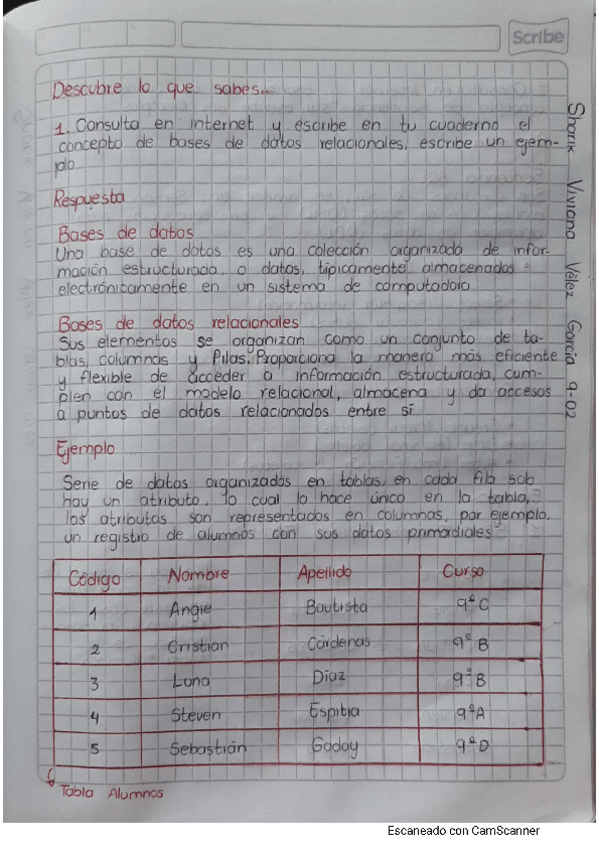 Scribe
Descubre lo que sabes...
1. Consulta en internet y escribe en tu cuaderno el
concepto de bases de datos relacionales, escribe un ejem-
plo
Respuesta
Bases de datos
Una base de datos es una colección organizada de infor-
mación estructurada, o datos, típicamente almacenados
electrónicamente en un sistema de computadora
Bases de datos relacionales
Sus elementos se organizan como un conjunto de ta-
blas, columnas y filas. Proporciona la manera más eficiente
y flexible de acceder a información estructurada, cum-
plen con el modelo relacional, almacena y da accesos
a puntos de datos relacionados entre sí
Ejemplo
Serie de datos organizados en tablas, en cada fila sob
hay un atributo, lo cual lo hace único en la tabla,
los atributas son representados en columnas, por ejemplo,
un registro de alumnos con sus datos primordiales
Código Nombre Apellido Curso
1 Angie Bautista 9º C
2 Cristian Cárdenas 9º B
3 Luna Díaz 9º B
4 Steven Espitia 9º A
5 Sebastián Godoy 9º D
Tabla Alumnos
Sharik Viviana Vélez García 9-02
Escaneado con CamScanner